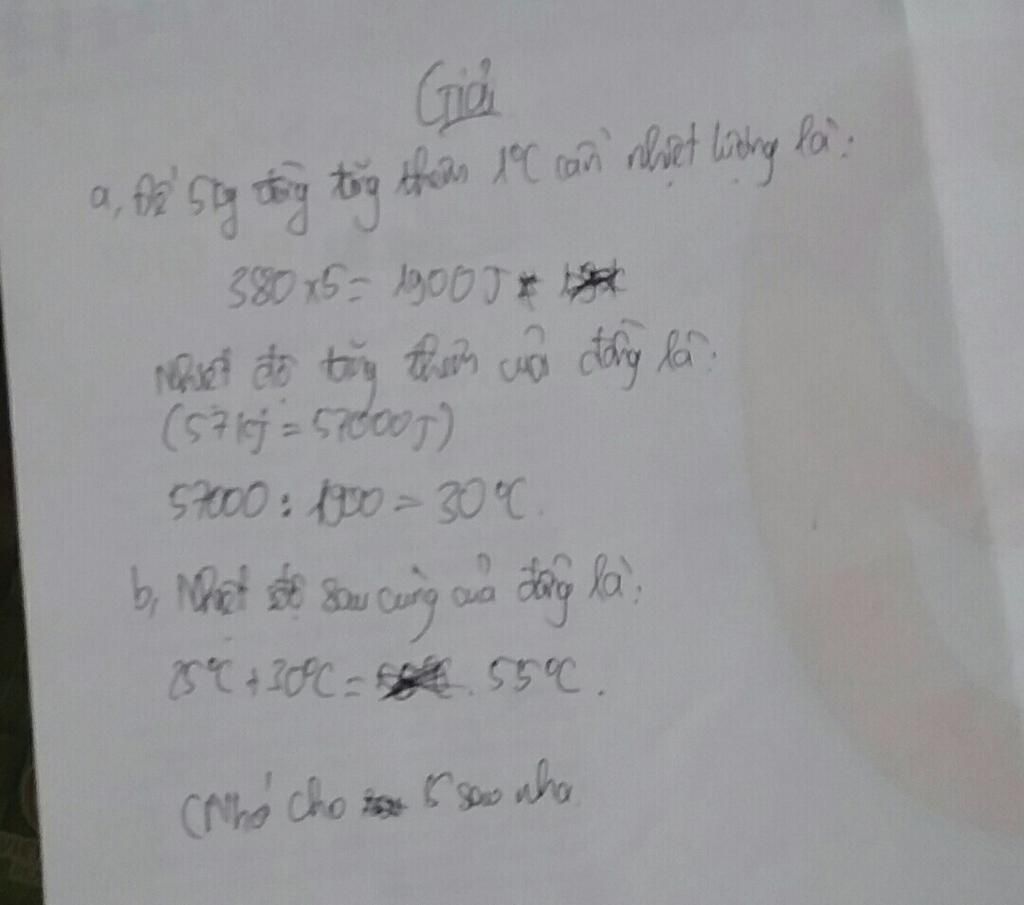 Giải
a, Để 5kg đồng tăng thêm 1°C cần nhiệt lượng là:
380 x 5 = 1900J
Nhiệt độ tăng thêm của đồng là:
(57kj = 57000J)
57000 : 1900 = 30°C.
b, Nhiệt độ sau cùng của đồng là:
25°C + 30°C = 55°C.
(Nhớ cho 5 sao nha